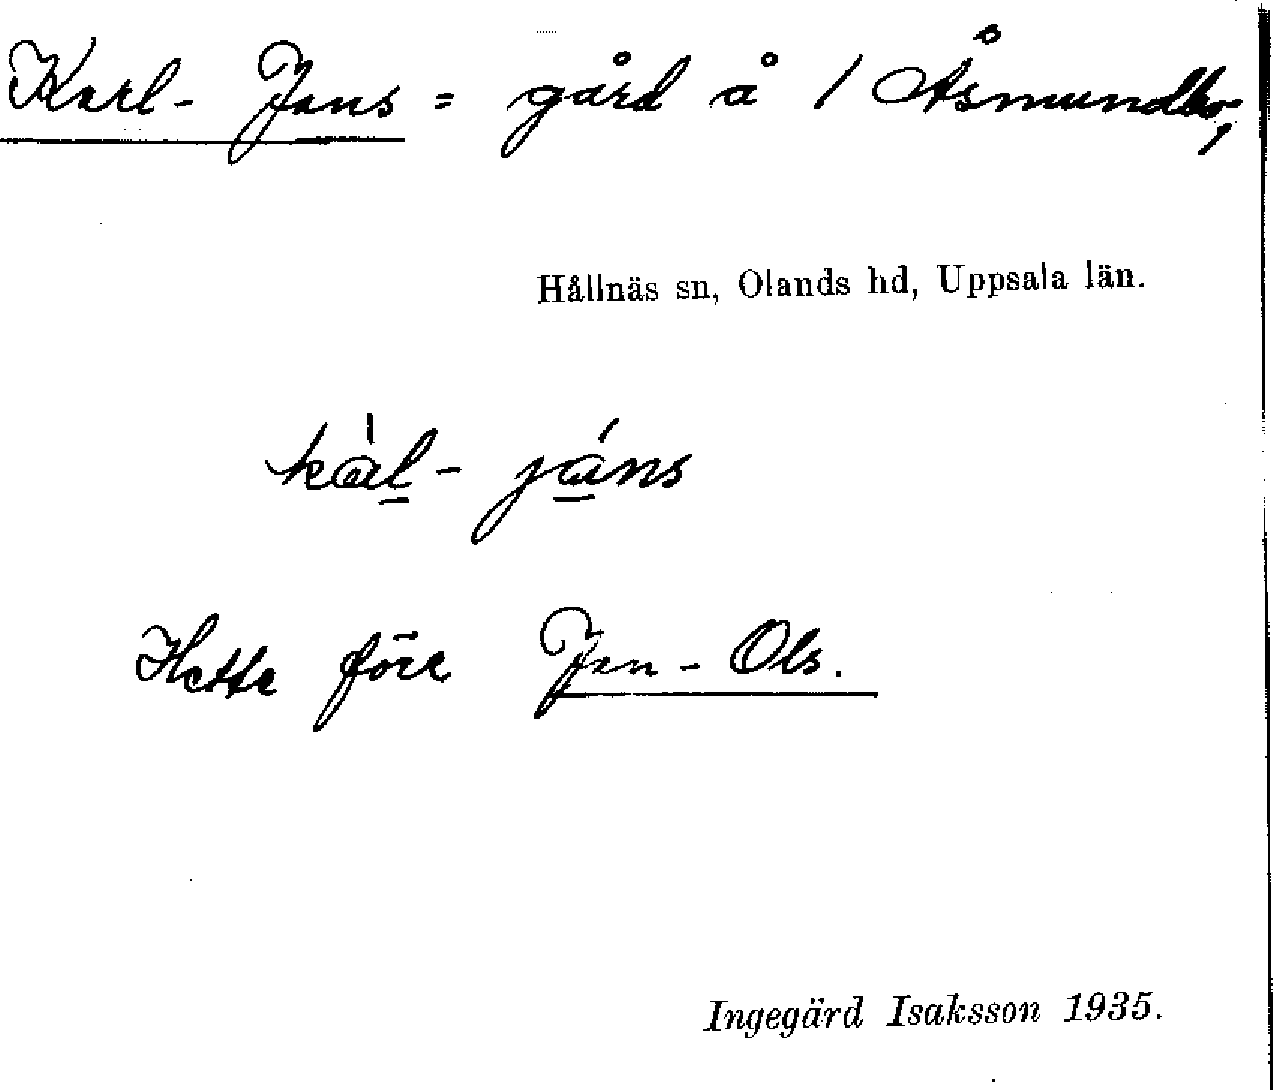 Karl-Jans = gård å / Åsmundbo,
Hållnäs sn, Olands hd, Uppsala län.
kàl̲ - já̲ns
Hette förr Jan-Ols.
Ingegärd Isaksson 1935.